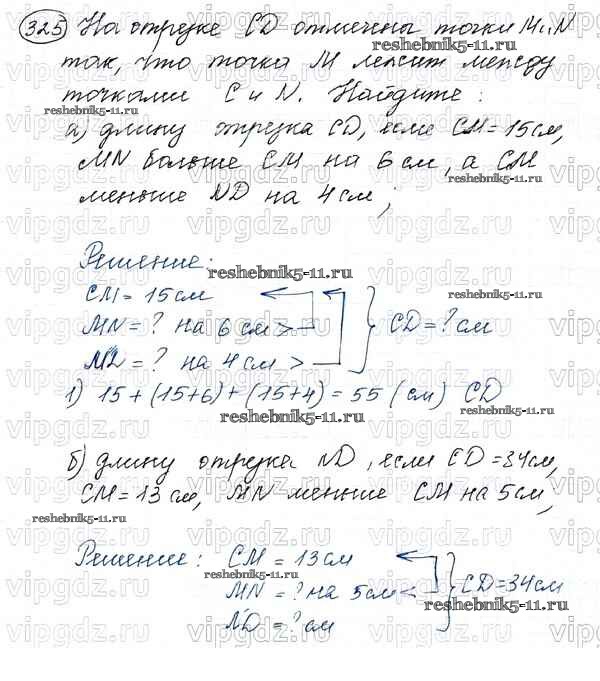 325 На отрезке CD отмечены точки M и N
так, что точка M лежит между
точками C и N. Найдите:
а) длину отрезка CD, если CM = 15 см,
MN больше CM на 6 см, а CM
меньше ND на 4 см;
Решение:
CM = 15 см
MN = ? на 6 см >
ND = ? на 4 см >
CD = ? см
1) 15 + (15+6) + (15+4) = 55 (см) CD
б) длину отрезка ND, если CD = 34 см,
CM = 13 см, MN меньше CM на 5 см,
Решение: CM = 13 см
MN = ? на 5 см <
CD = 34 см
ND = ? см
reshebnik5-11.ru
vipgdz.ru